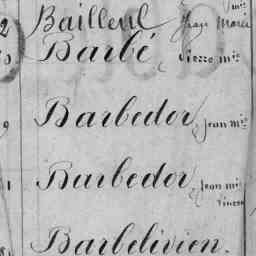 Bailleul Jean Marie
Barbé, Pierre mie
Barbedor, Jean mie
Barbedor, Jean mie
Vincent
Barbelivien.